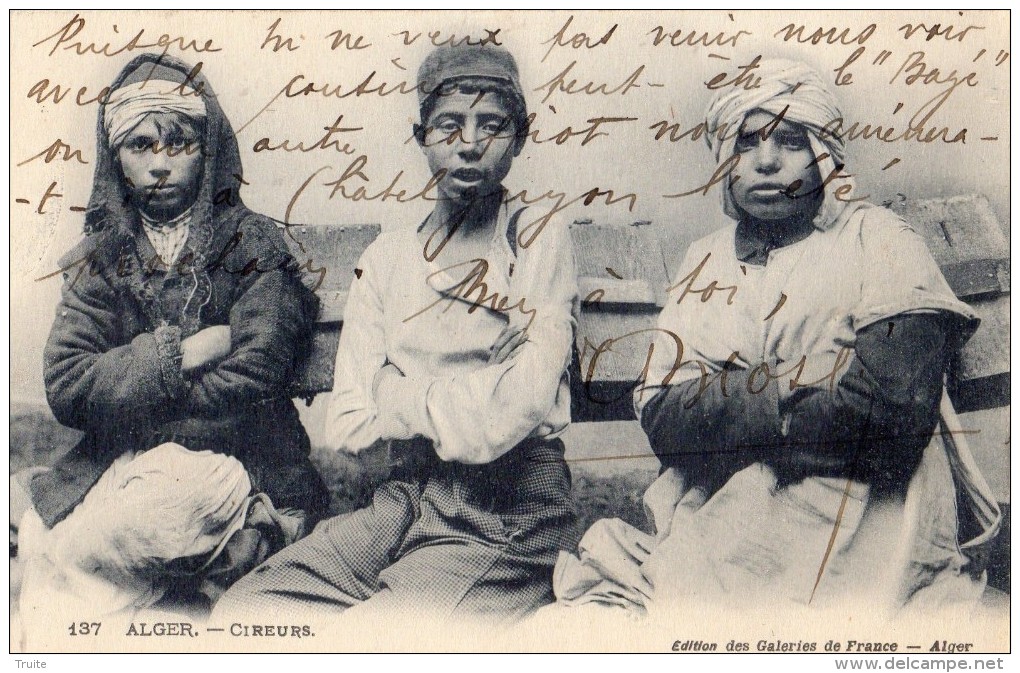 Puisque tu ne veux pas venir nous voir,
avec le cousin, peut-être, le "Bagé"
ou un autre cahiot nous amènera-
-t-il à Châtelguyon l'été
prochain.
Bien à toi,
137 ALGER. — CIREURS.
Edition des Galeries de France — Alger
Truite
www.delcampe.net